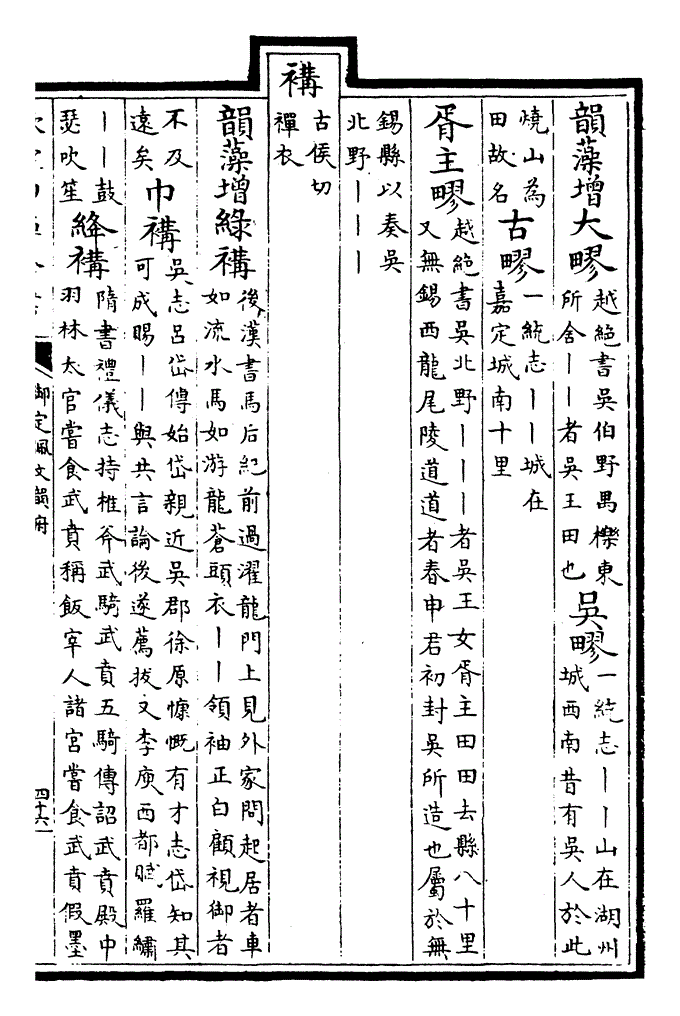 韻藻增大疁越絕書吳伯野禺櫟東所舍丨丨者吳王田也吳疁一統志丨丨山在湖州城西南昔有吳人於此
燒山為田故名古疁一統志丨丨城在嘉定城南十里
胥主疁越絕書吳北野丨丨丨者吳王女胥主田田去縣八十里又無錫西龍尾陵道道者春申君初封吳所造也屬於無
錫縣以奏吳北野丨丨丨
褠古侯切襌衣
韻藻增綠褠後漢書馬后紀前過濯龍門上見外家問起居者車如流水馬如游龍蒼頭衣丨丨領袖正白顧視御者
不及遠矣巾褠吳志呂岱傳始岱親近吳郡徐原慷慨有才志岱知其可成賜丨丨與共言論後遂薦拔又李庾西都賦羅繡
丨丨鼓瑟吹笙絳褠隋書禮儀志持椎斧武騎武賁五騎傳詔武賁殿中羽林太官嘗食武賁稱飯宰人諸宮嘗食武賁假墨
御定佩文韻府
四十六